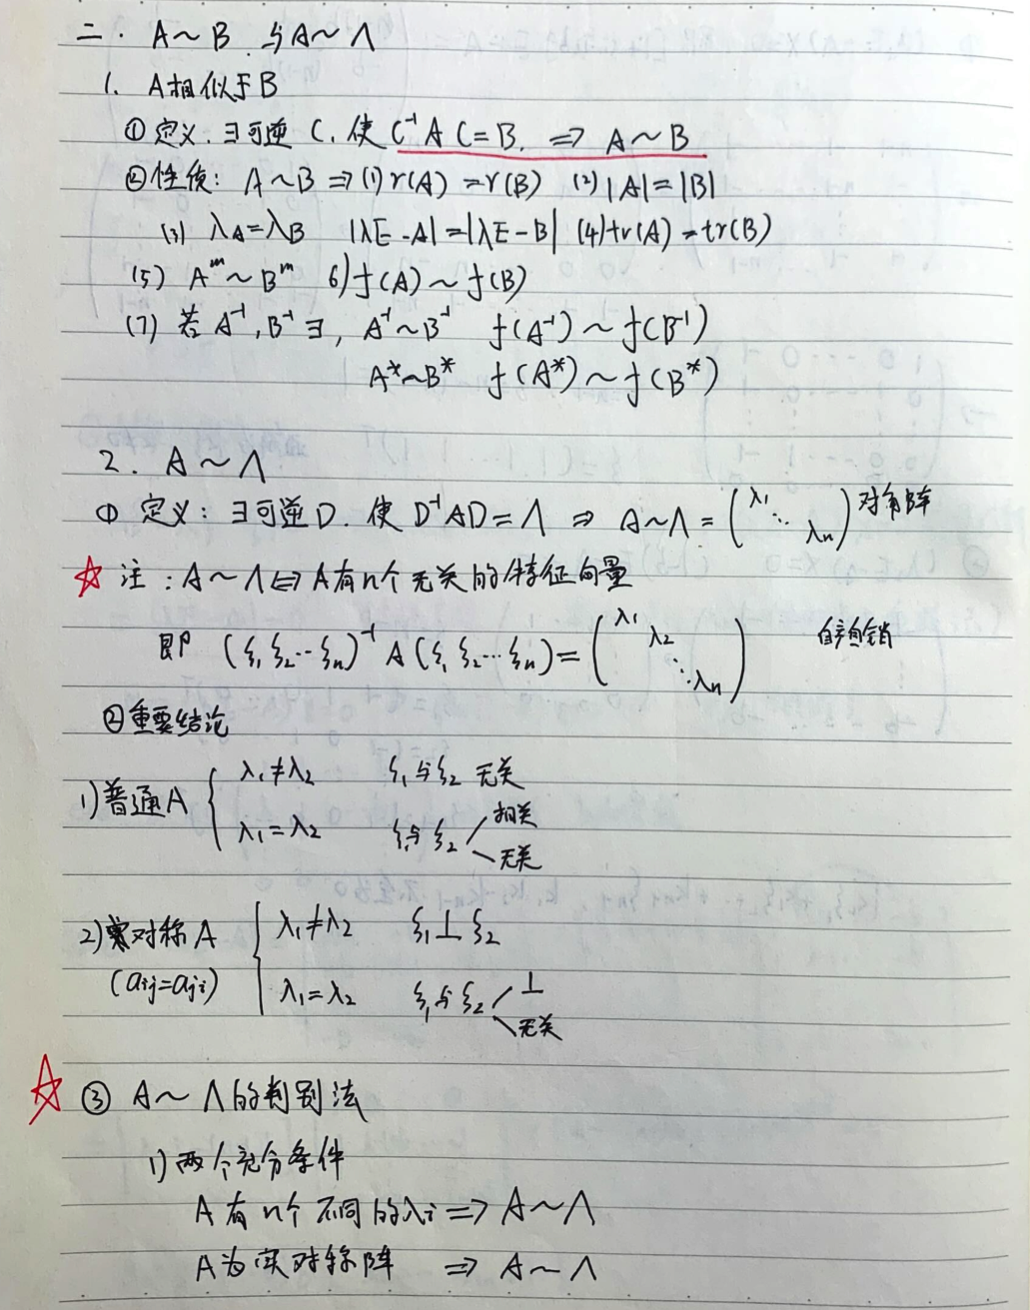 二. A~B 与A~Λ
1. A相似于B
①定义.∃可逆 C.使 C⁻¹AC=B. ⇒ A~B
②性质: A~B ⇒ (1) r(A)=r(B) (2) |A|=|B|
(3) λA=λB |λE-A|=|λE-B| (4) tr(A)=tr(B)
(5) Aᵐ~Bᵐ 6) f(A)~f(B)
(7) 若 A⁻¹,B⁻¹∃, A⁻¹~B⁻¹ f(A⁻¹)~f(B⁻¹)
A*~B* f(A*)~f(B*)
2. A~Λ
① 定义:∃可逆D.使 D⁻¹AD=Λ ⇒ A~Λ=(λ₁ ⋱ λn) 对角阵
☆ 注:A~Λ⇔A有n个无关的特征向量
即 (ξ₁ ξ₂…ξn)⁻¹ A (ξ₁ ξ₂…ξn)=(λ₁ λ₂ ⋱ λn)
②重要结论
1)普通A { λ₁≠λ₂ ξ₁与ξ₂ 无关
λ₁=λ₂ ξ₁与ξ₂ 相关
无关
2)实对称A { λ₁≠λ₂ ξ₁⊥ξ₂
(aij=aji) λ₁=λ₂ ξ₁与ξ₂ ⊥
无关
☆ ③ A~Λ的判别法
1)两个充分条件
A有n个不同的λi⇒A~Λ
A为实对称阵 ⇒ A~Λ